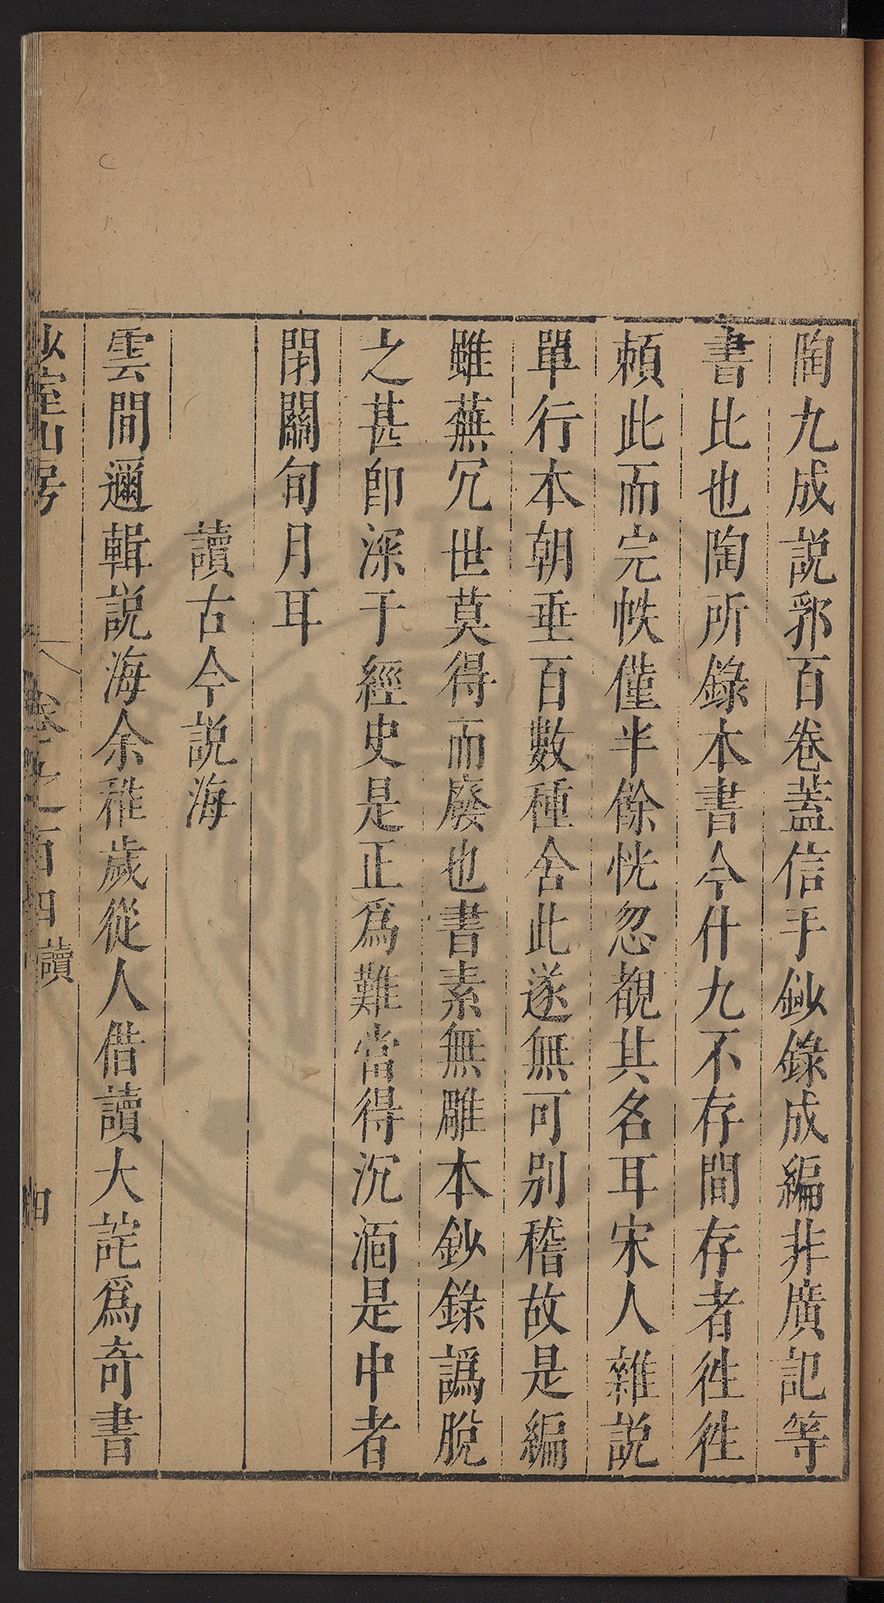 陶九成説郛百卷蓋信手鈔錄成編非廣記等
書比也陶所錄本書今什九不存間存者徃徃
頼此而完帙僅半餘恍忽覩其名耳宋人雜説
單行本朝垂百數種舍此遂無可别稽故是編
雖蕪冗世莫得而廢也書素無雕本鈔錄譌脫
之甚卽深于經史是正爲難當得沉湎是中者
閉關旬月耳
讀古今説海
雲間邇輯説海余稚歲從人借讀大詫爲奇書
少室山房 卷之百四 讀 四